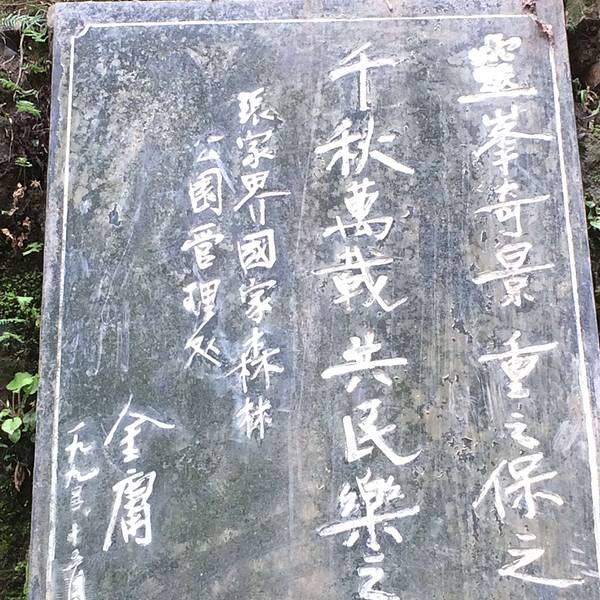 靈峯奇景 重之保之
千秋萬載 共民樂之
張家界國家森林
公園管理处
金庸